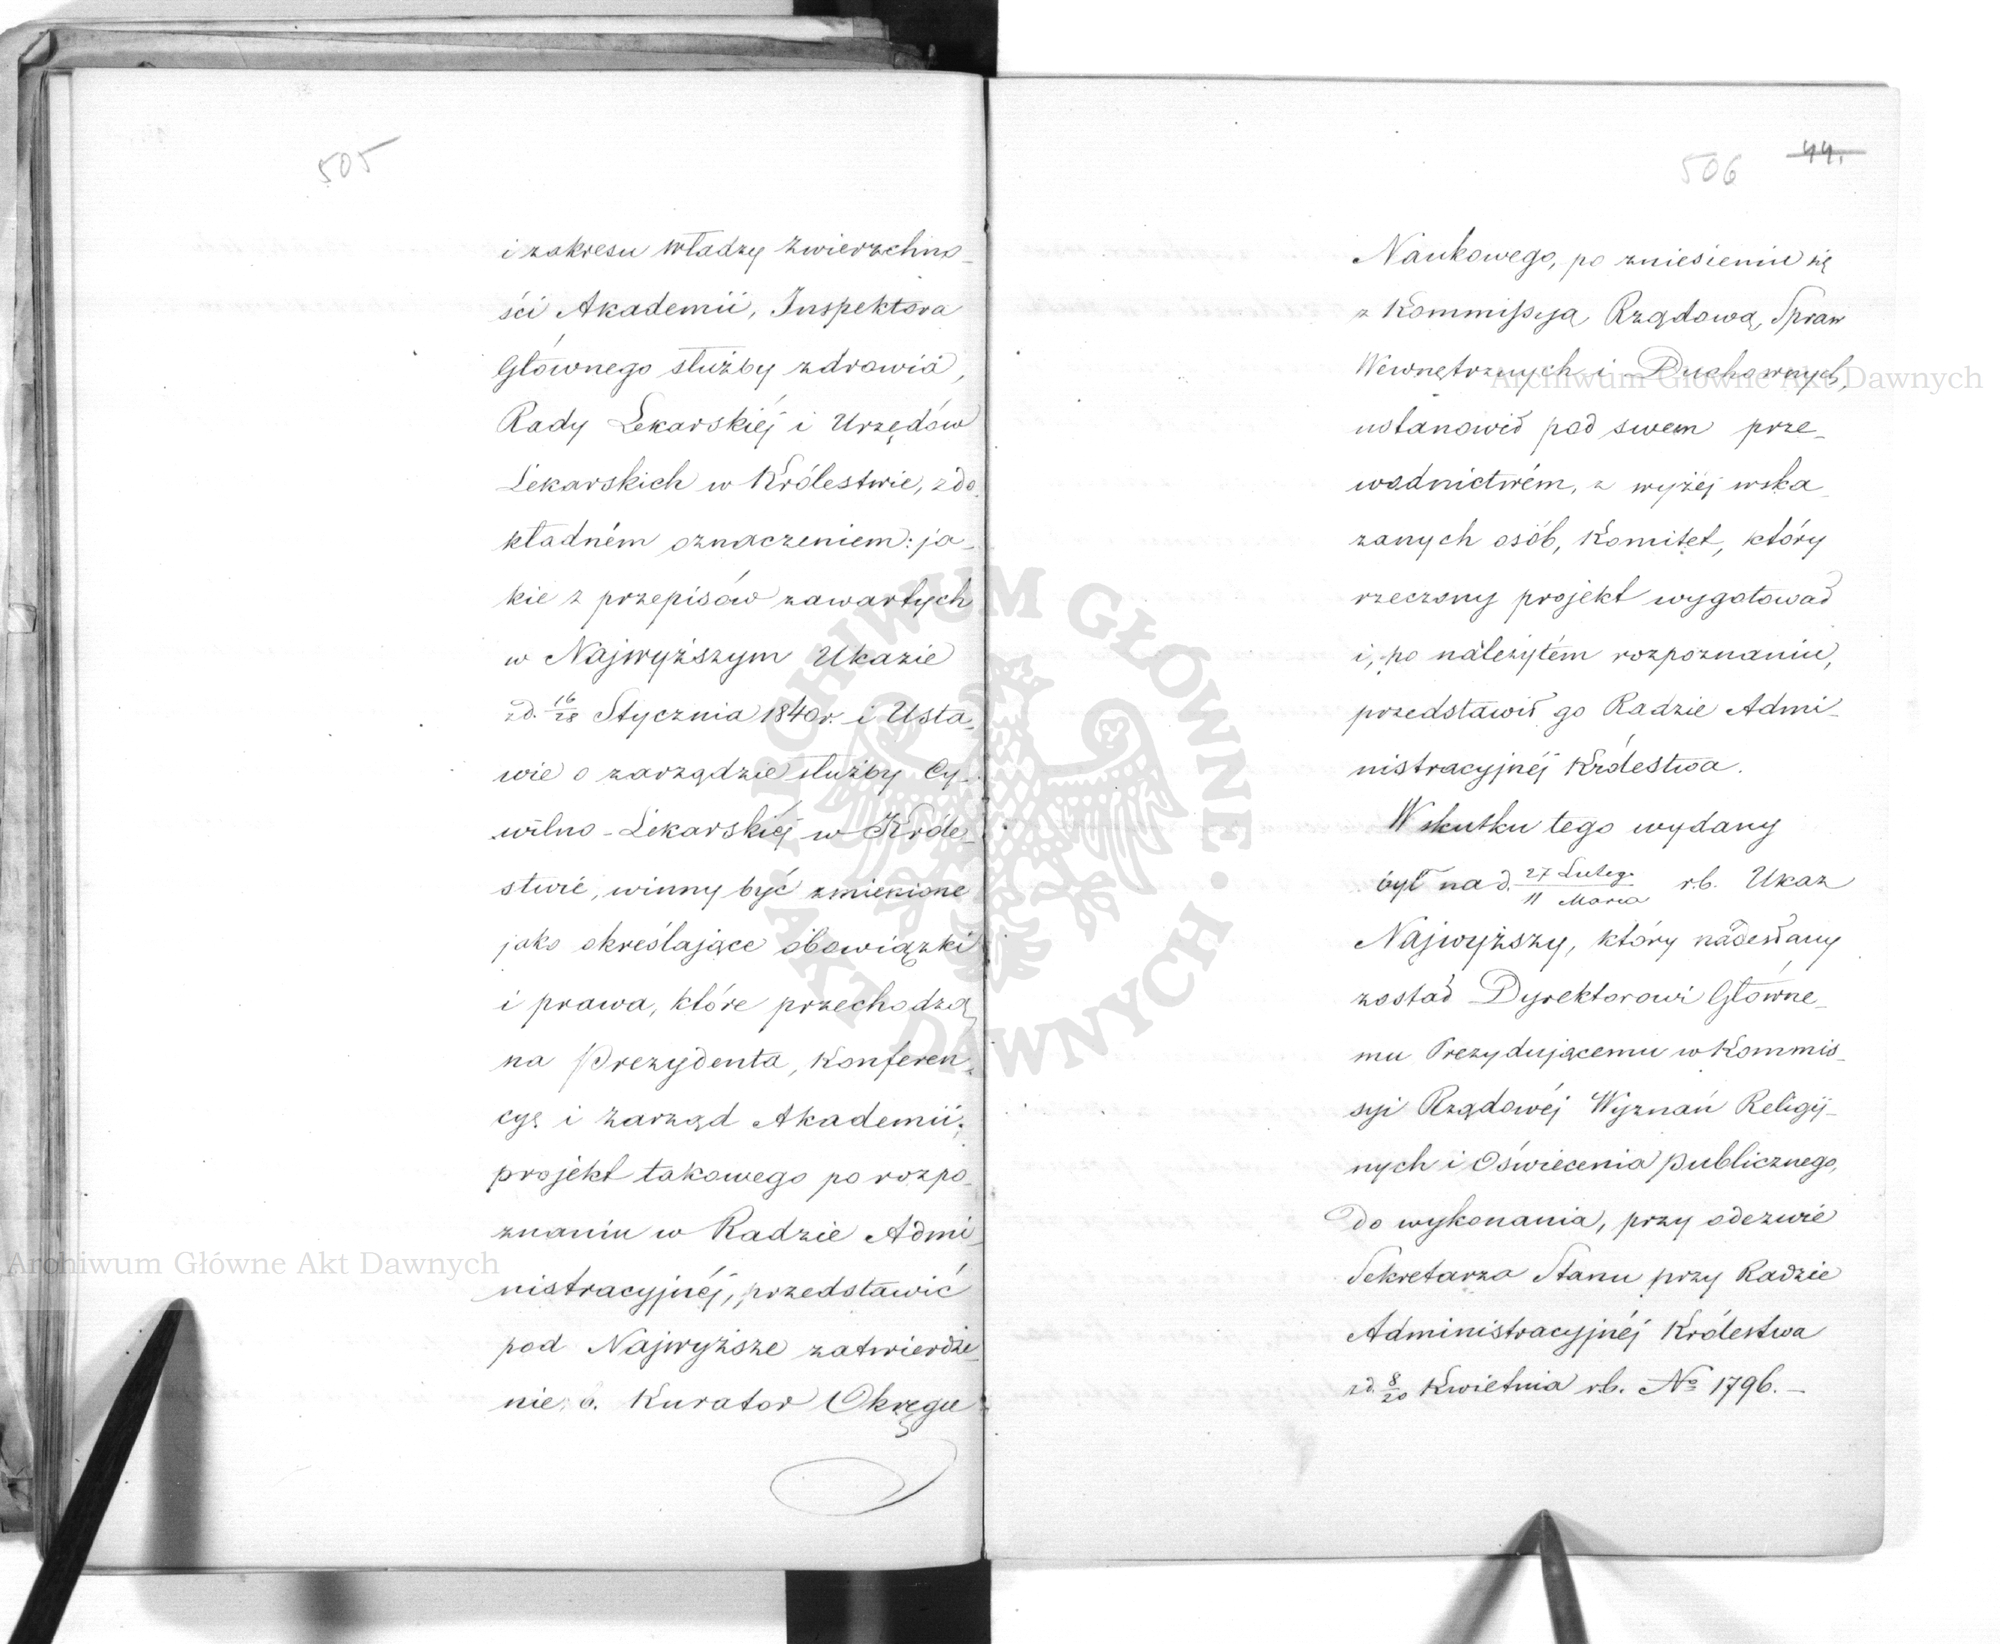 505
i zakresu władzy zwierzchno-
ści Akademii, Inspektora
Głównego służby zdrowia,
Rady Lekarskiéj i Urzędów
Lekarskich w Królestwie, z do-
kładném oznaczeniem: ja-
kie z przepisów zawartych
w Najwyższym Ukazie
z d. 16/28 Stycznia 1840 r. i Usta-
wie o zarządzie służby Cy-
wilno-Lekarskiéj w Króle-
stwie, winny być zmienione
jako określające obowiązki
i prawa, które przechodzą
na Prezydenta, Konferen-
cyę i Zarząd Akademii;
projekt takowego po rozpo-
znaniu w Radzie Admi-
nistracyjnéj, przedstawić
pod Najwyższe zatwierdze-
nie. 6. Kurator Okręgu
506 44.
Naukowego, po zniesieniu się
z Kommissyą Rządową Spraw
Wewnętrznych i Duchownych,
ustanowił pod swem prze-
wodnictwém, z wyżéj wska-
zanych osób, Komitet, który
rzeczony projekt wygotował
i, po należytém rozpoznaniu,
przedstawił go Radzie Admi-
nistracyjnéj Królestwa.
Wskutku tego wydany
był na d. 27 Luteg./11 Marca r.b. Ukaz
Najwyższy, który nadesłany
został Dyrektorowi Główne-
mu Prezydującemu w Kommis-
syi Rządowéj Wyznań Religij-
nych i Oświecenia publicznego,
do wykonania, przy odezwie
Sekretarza Stanu przy Radzie
Administracyjnéj Królestwa
z d. 8/20 Kwietnia r.b. № 1796. –
Archiwum Główne Akt Dawnych
Archiwum Główne Akt Dawnych
ARCHIWUM GŁÓWNE • AKT DAWNYCH •